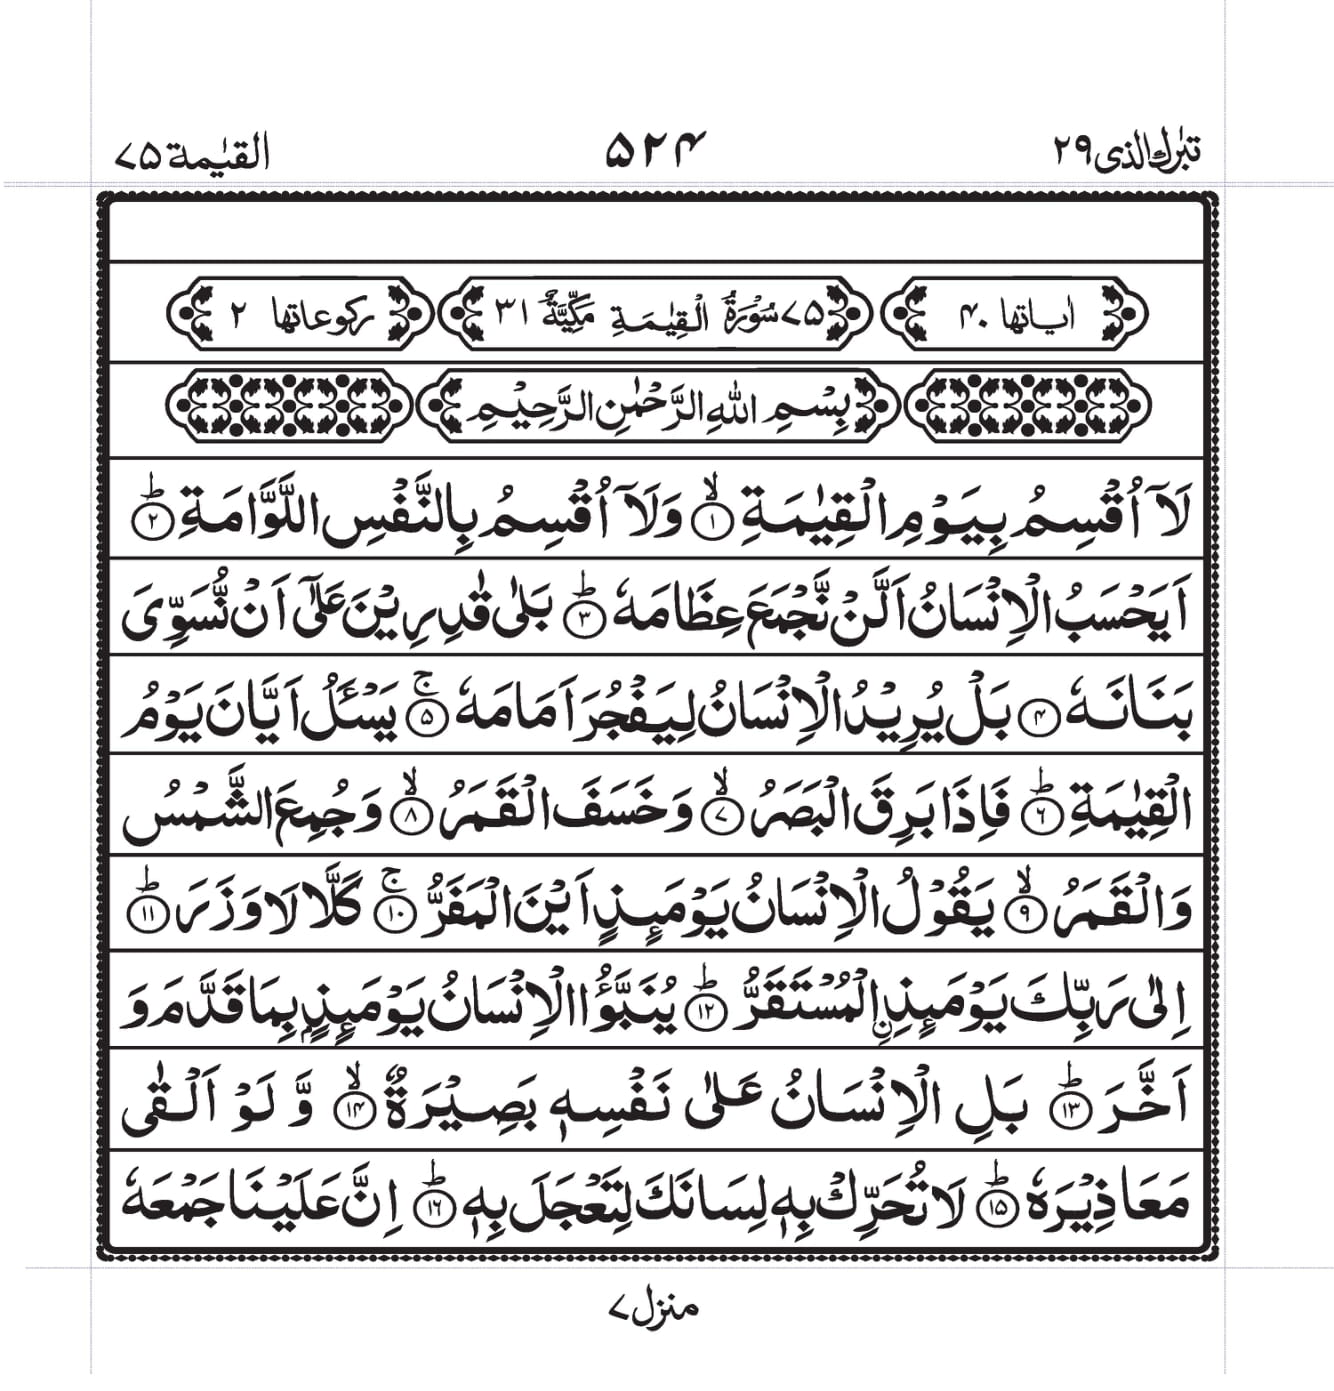 تبٰرك الذی ۲۹ ۵۲۴ القیٰمة ۷۵
اٰیاتها ۴۰ ۷۵ سُوْرَةُ الْقِیٰمَةِ مَكِّیَّةٌ ۳۱ ركوعاتها ۲
بِسْمِ اللّٰهِ الرَّحْمٰنِ الرَّحِیْمِ
لَاۤ اُقْسِمُ بِیَوْمِ الْقِیٰمَةِ ۙ﴿۱﴾ وَلَاۤ اُقْسِمُ بِالنَّفْسِ اللَّوَّامَةِ ؕ﴿۲﴾
اَیَحْسَبُ الْاِنْسَانُ اَلَّنْ نَّجْمَعَ عِظَامَهٗ ؕ﴿۳﴾ بَلٰی قٰدِرِیْنَ عَلٰۤی اَنْ نُّسَوِّیَ
بَنَانَهٗ ﴿۴﴾ بَلْ یُرِیْدُ الْاِنْسَانُ لِیَفْجُرَ اَمَامَهٗ ۚ﴿۵﴾ یَسْـَٔلُ اَیَّانَ یَوْمُ
الْقِیٰمَةِ ؕ﴿۶﴾ فَاِذَا بَرِقَ الْبَصَرُ ۙ﴿۷﴾ وَخَسَفَ الْقَمَرُ ۙ﴿۸﴾ وَجُمِعَ الشَّمْسُ
وَالْقَمَرُ ۙ﴿۹﴾ یَقُوْلُ الْاِنْسَانُ یَوْمَىِٕذٍ اَیْنَ الْمَفَرُّ ۚ﴿۱۰﴾ كَلَّا لَا وَزَرَ ؕ﴿۱۱﴾
اِلٰی رَبِّكَ یَوْمَىِٕذِ ِ۟الْمُسْتَقَرُّ ؕ﴿۱۲﴾ یُنَبَّؤُا الْاِنْسَانُ یَوْمَىِٕذٍۭ بِمَا قَدَّمَ وَ
اَخَّرَ ؕ﴿۱۳﴾ بَلِ الْاِنْسَانُ عَلٰی نَفْسِهٖ بَصِیْرَةٌ ۙ﴿۱۴﴾ وَّ لَوْ اَلْقٰی
مَعَاذِیْرَهٗ ؕ﴿۱۵﴾ لَا تُحَرِّكْ بِهٖ لِسَانَكَ لِتَعْجَلَ بِهٖ ؕ﴿۱۶﴾ اِنَّ عَلَیْنَا جَمْعَهٗ
منزل ۷